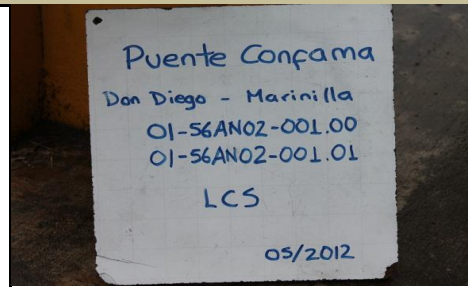 Puente Confama
Don Diego - Marinilla
01-56AN02-001.00
01-56AN02-001.01
LCS
05/2012